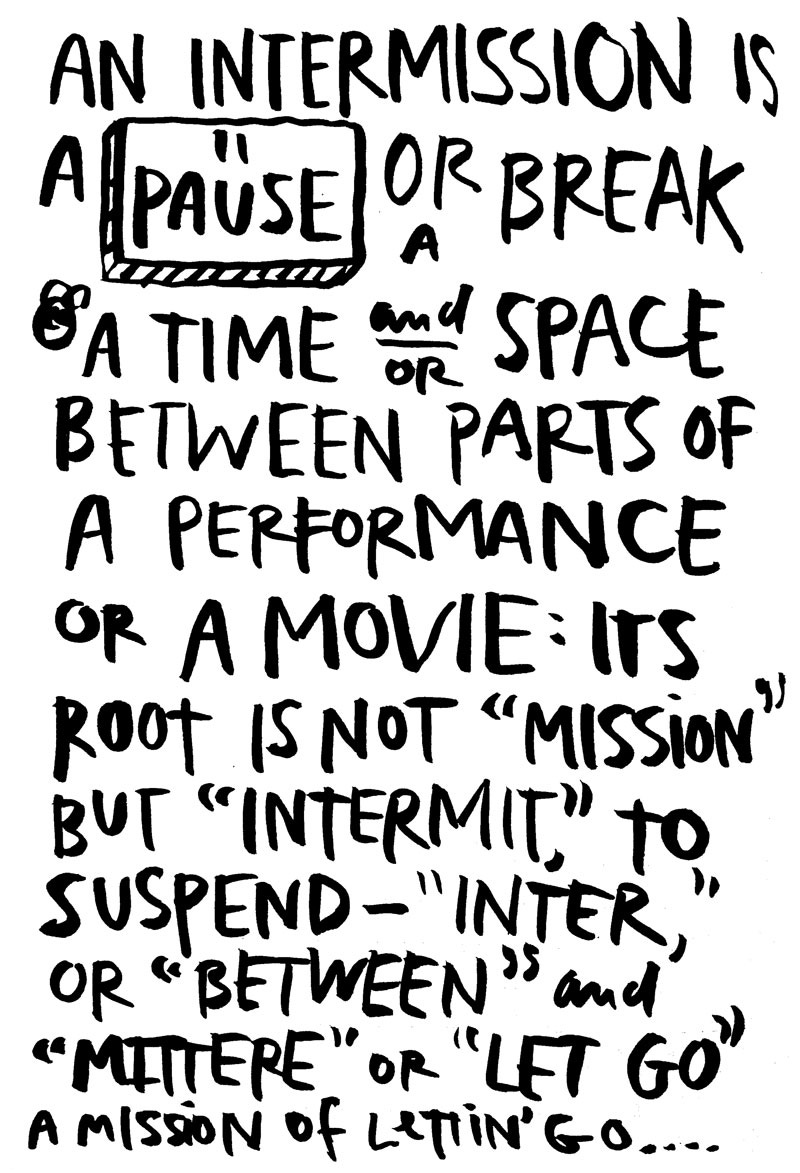 AN INTERMISSION IS
A PAUSE OR A BREAK
A TIME and OR SPACE
BETWEEN PARTS OF
A PERFORMANCE
OR A MOVIE: ITS
ROOT IS NOT “MISSION”
BUT “INTERMIT,” TO
SUSPEND–"INTER,"
OR “BETWEEN” and
“MITTERE” OR “LET GO”
A MISSION OF LETTIN' GO....